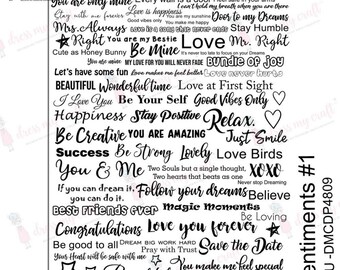 You are only mine Every wall is a door
Stay with me forever Love is happiness
Good vibes only Door to my Dreams
Mrs. Always you make me happy Stay Humble
Right You are my Bestie Love Mr. Right
Cute as Honey Bunny Be Mine
You are mine MY LOVE FOR YOU WILL NEVER FADE Bundle of Joy
Let's have some fun Love makes me feel better Love never hurts
BEAUTIFUL Wonderful time Love at First Sight
I Love You Be Your Self Good Vibes Only
Happiness Stay Positive Relax.
Be Creative YOU ARE AMAZING Just Smile
Success Be Strong Lovely Love Birds
You & Me Two Souls but a single thought, XOXO
Two hearts that beats as one
Never stop Dreaming
If you can dream it. Follow your dreams
you can do it. Believe
best friends ever Magic Moments
Be Loving
Congratulations Love you forever
Be good to all DREAM BIG WORK HARD Save the Date
Pray with Trust
Your Heart will be safe with me
You make me feel special
entiments #1
U -DMCDP4809